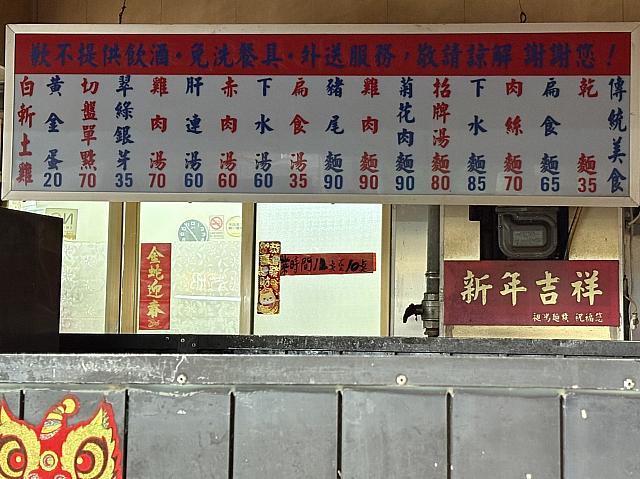 歉不提供飲酒·免洗餐具·外送服務,敬請諒解 謝謝您!
傳統美食
乾麵 35
扁食麵 65
肉絲麵 70
下水麵 85
招牌湯麵 80
菊花肉麵 90
雞肉麵 90
豬尾麵 90
扁食湯 35
下水湯 60
赤肉湯 60
肝連湯 60
雞肉湯 70
翠綠銀芽 35
切盤單點 70
黃金蛋 20
白斬土雞
金蛇迎春
新年吉祥
祖馬麵線 祝福您